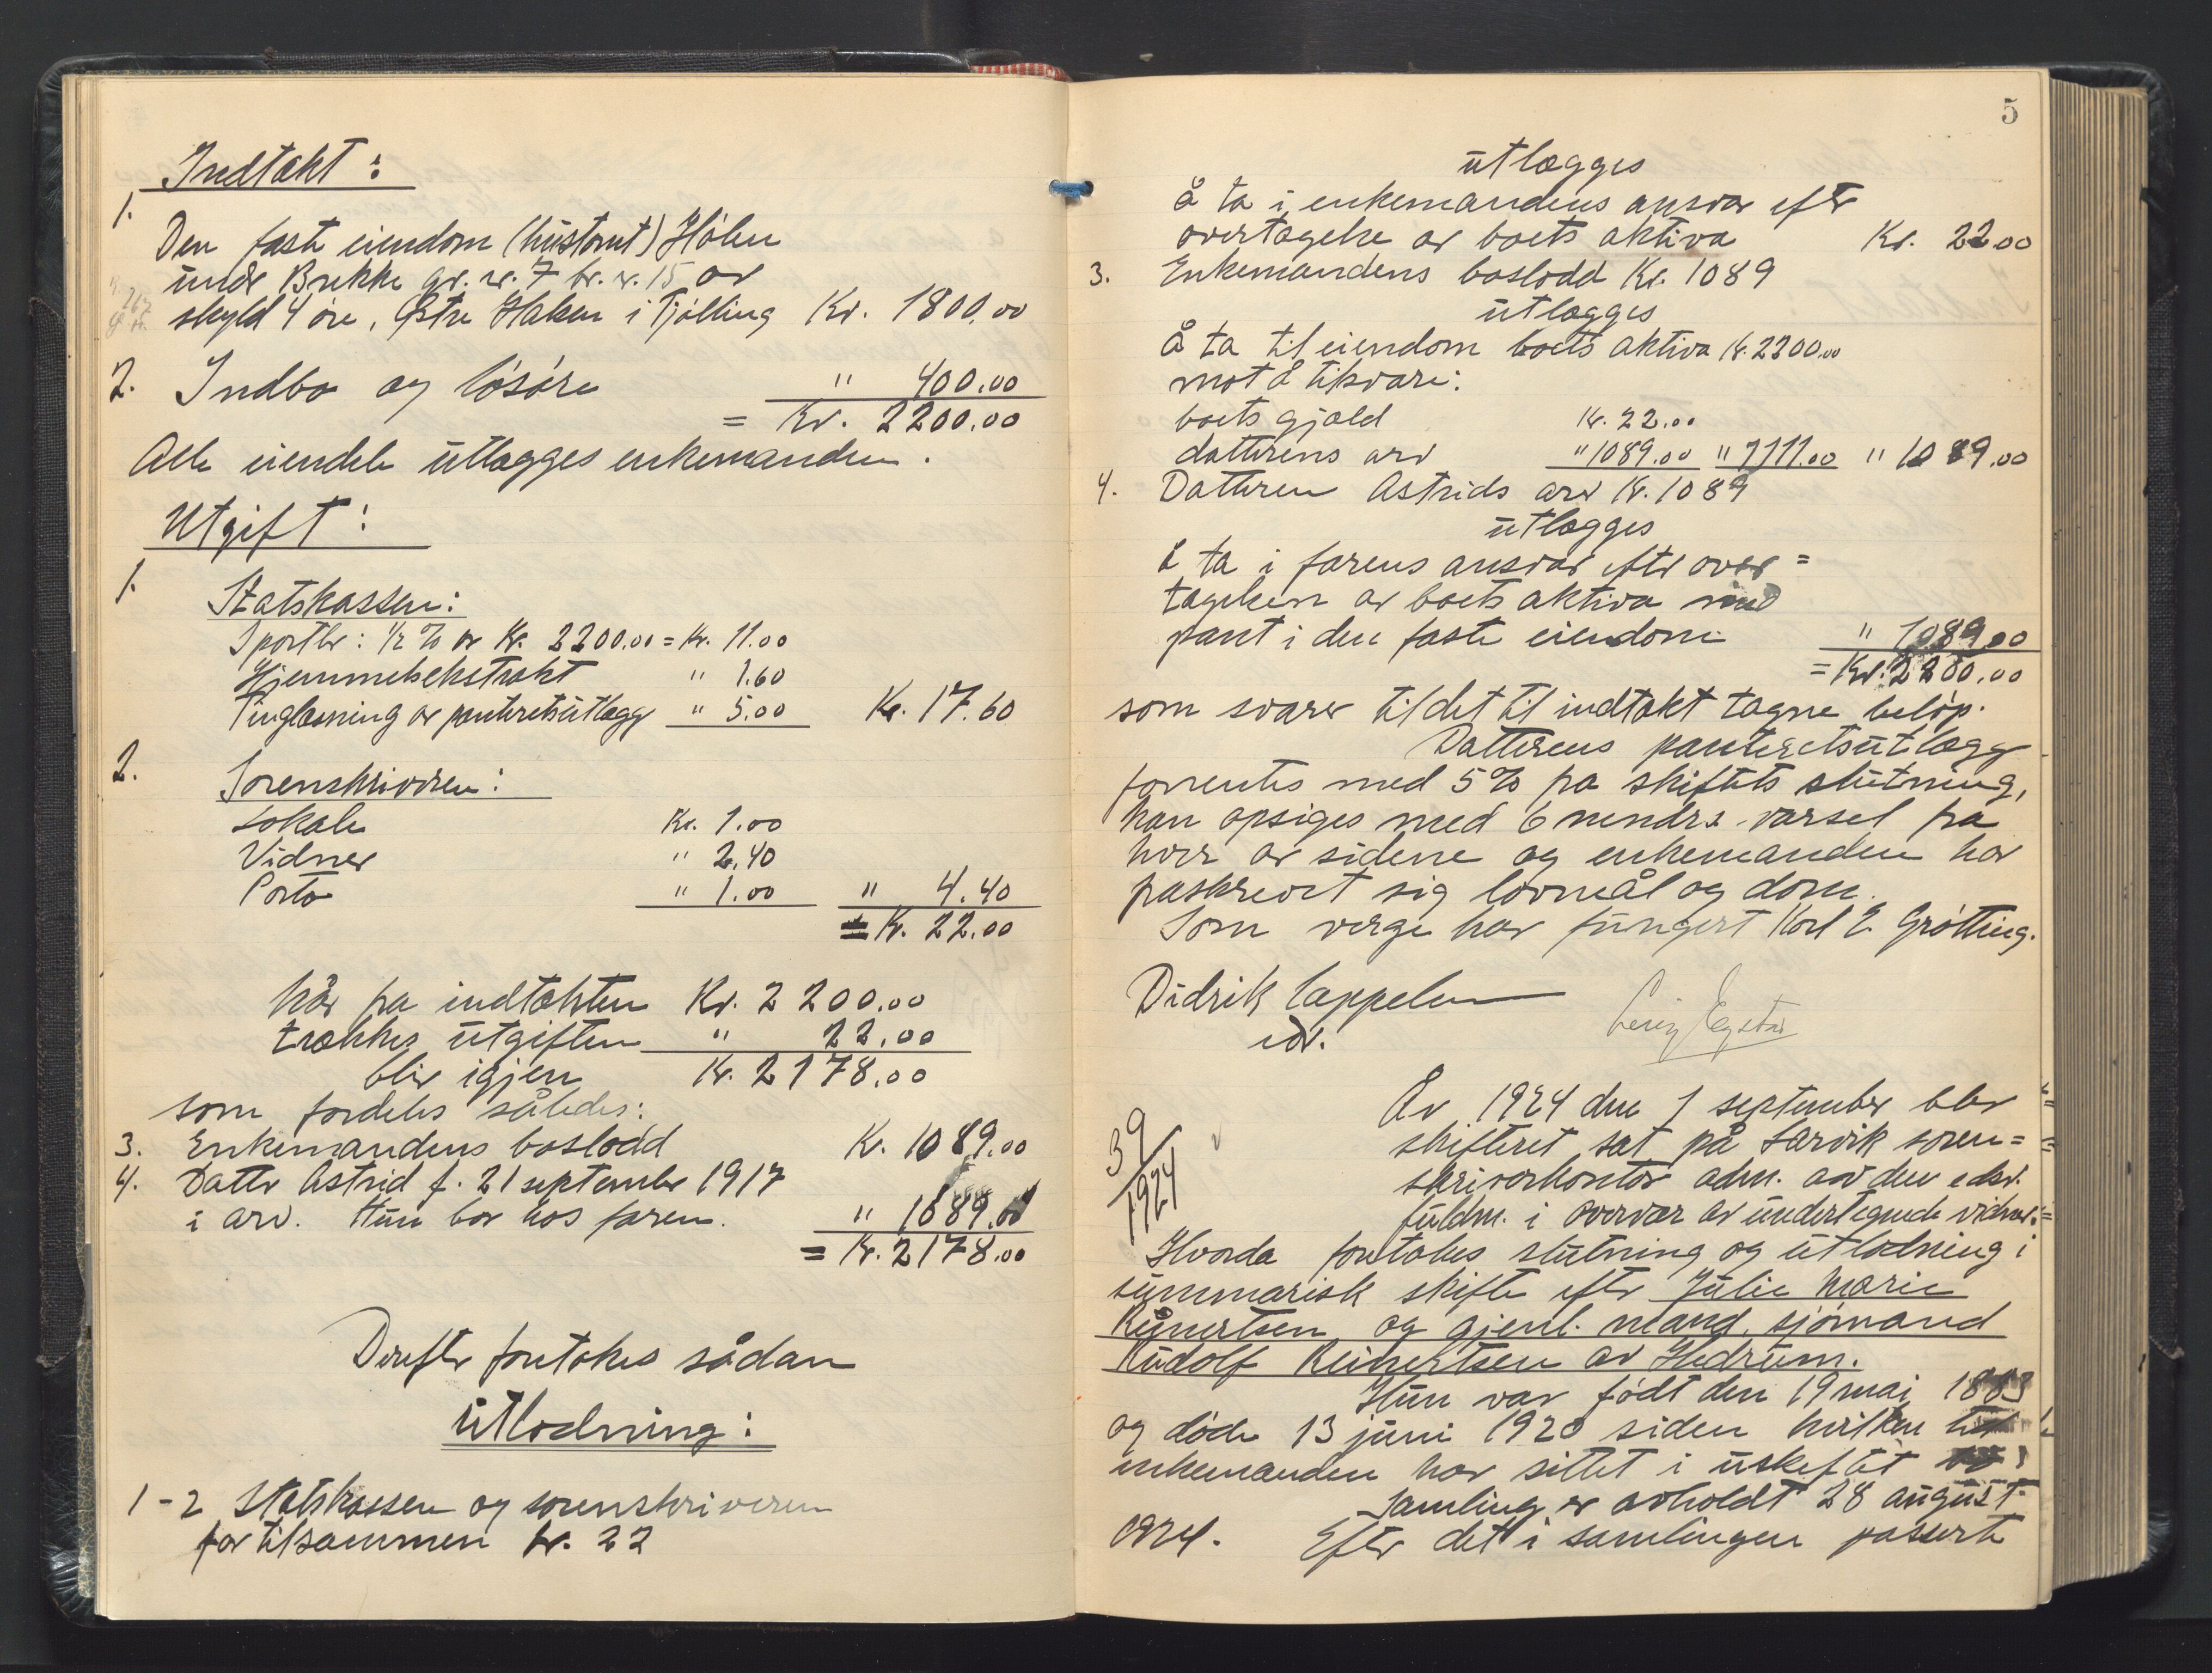 Indtækt:
1.
Den faste eiendom (hustomt) Hølen
under Brekke gr. nr. 7 br. nr. 15 av
skyld 4 øre, Østre Halsen i Tjølling Kr. 1800,00
2. Indbo og løsøre " 400.00
= Kr. 2200.00
Alle eiendele utlægges enkemanden.
Utgift:
1.
Statskassen:
Sportler: 1/2 % av Kr. 2200.00 = Kr. 11.00
Hjemmelsekstrakt " 1.60
Tinglæsning av panteretsutlægg " 5.00 Kr. 17.60
2.
Sorenskriveren:
Lokale Kr. 1.00
Vidner " 2.40
Porto " 1.00 " 4.40
= Kr. 22.00
Når fra indtækten Kr. 2200.00
trækkes utgiften " 22.00
blir igjen Kr. 2178.00
som fordeles således:
3. Enkemandens boslodd Kr. 1089.00
4. Datter Astrid f. 21 september 1917
i arv. Hun bor hos faren. " 1089.00
= Kr. 2178.00
Derefter foretokes sådan
utlodning:
1-2 Statskassen og sorenskriveren
får tilsammen kr. 22
5
utlægges
å ta i enkemandens ansvar efter
overtagelse av boets aktiva Kr. 22.00
3. Enkemandens boslodd Kr. 1089
utlægges
å ta til eiendom boets aktiva kr. 2200.00
mot å tilsvare:
boets gjæld kr. 22.00
datterens arv " 1089.00 " 1111.00 " 1089.00
4. Datteren Astrids arv kr. 1089
utlægges
å ta i farens ansvar efter over=
tagelsen av boets aktiva med
pant i den faste eiendom " 1089.00
= Kr. 2200.00
som svarer til det til indtækt tagne beløp.
Datterens panteretsutlægg
forrentes med 5% fra skiftets slutning,
kan opsiges med 6 mndrs varsel fra
hver av sidene og enkemanden har
påskrevet sig lovmål og dom.
Som verge har fungert Karl E. Grøtting.
Didrik Cappelen
edv.
År 1924 den 1 september blev
skifteret sat på Larvik soren=
skriverkontor adm. av den edsv.
fuldm. i overvær av undertegnede vidner.
39/1924
Hvorda foretokes slutning og utlodning i
summarisk skifte efter Julie Marie
Reinertsen og gjenl. mand, sjømand
Rudolf Reinertsen av Hedrum.
Hun var født den 19 mai 1883
og døde 13 juni 1920 siden hvilken tid
enkemanden har sittet i uskiftet
Samling er avholdt 28 august
1924. Efter det i samlingen passerte